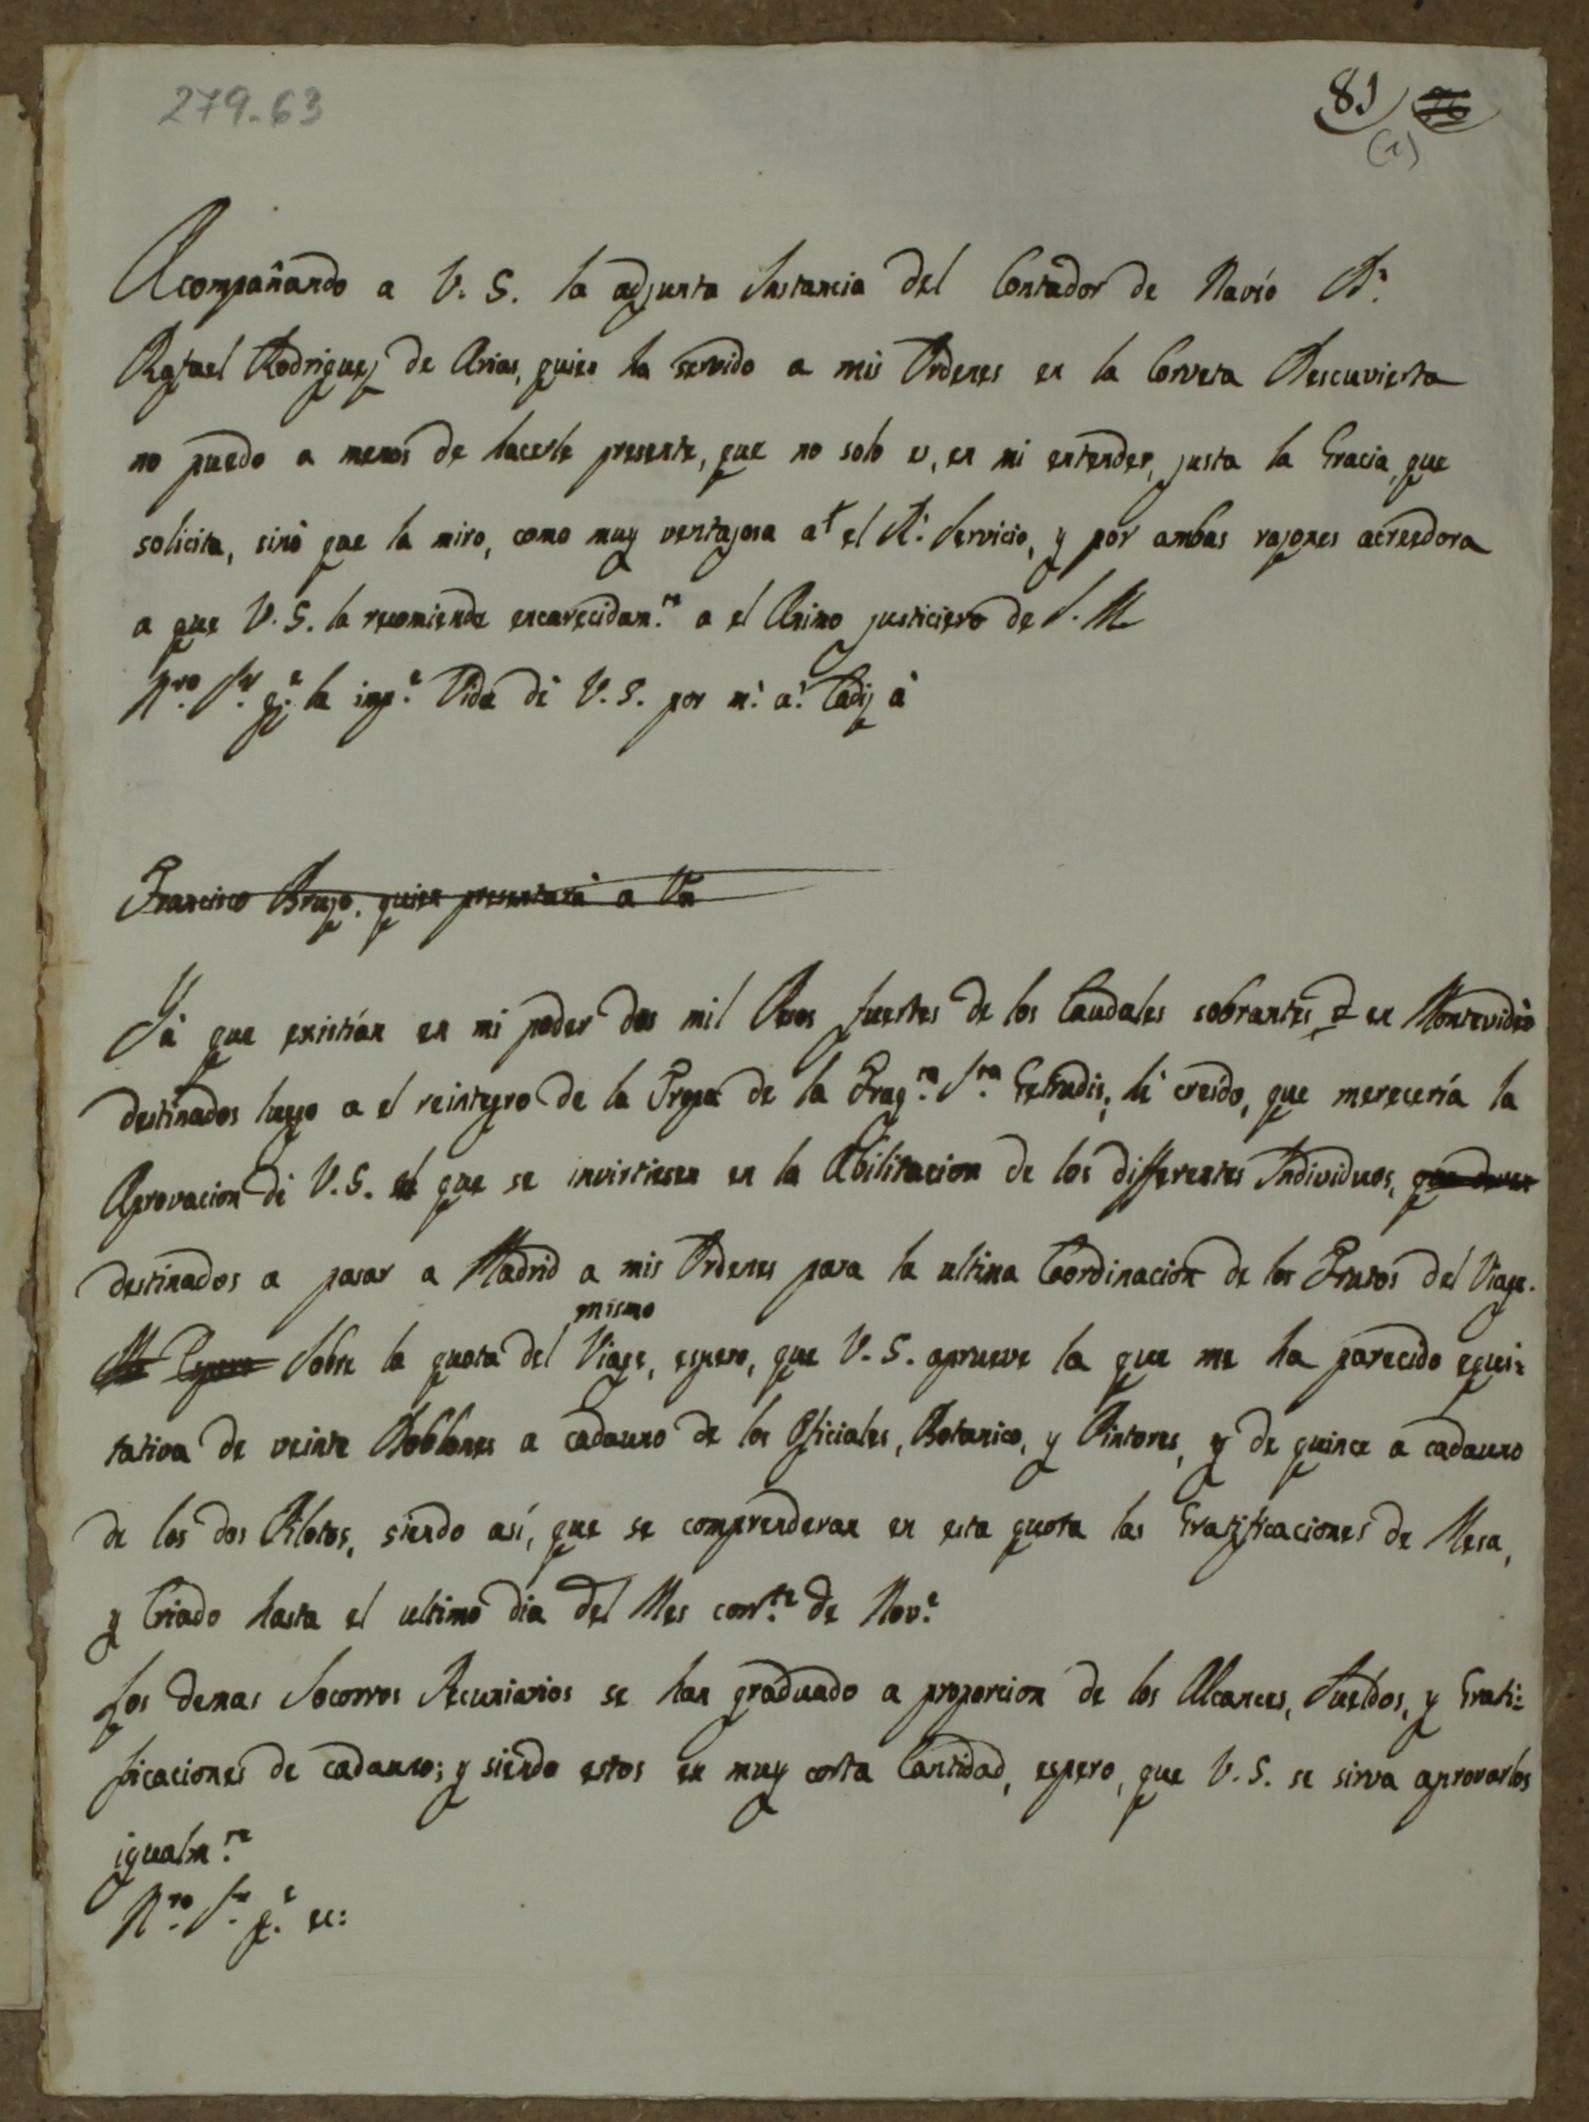 279-63
81 76
(1)
Acompañando a V. S. la adjunta Instancia del Contador de Navío Dn.
Rafael Rodriguez de Arias, quien ha servido a mis Ordenes en la Corveta Descuvierta
no puedo a menos de hacerle presente, que no solo es, en mi entender, justa la Gracia, que
solicita, sinò que la miro, como muy ventajosa a el Rl. Servicio, y por ambas razones acreedora
a que V. S. la recomiende encarecidamte. a el Animo justiciero de S. M.
Nro. Sr. ge. la impe. Vida de V. S. por ms. as. Cadiz à
Francisco Bruzo, quien presentarà a Vm
Yà que existían en mi poder dos mil Pesos fuertes de los Caudales sobrantes en Montevidèo
destinados luego a el reintegro de la Tropa de la Fragta. Sta. Getrudis, hè creìdo, que merecería la
Aprovacion de V. S. el que se invirtiesen en la Abilitacion de los differentes Individuos, que deven
destinados a pasar a Madrid a mis Ordenes para la ultima Coordinacion de los Frutos del Viage.
mismo
Me Espero Sobre la quota del Viage, espero, que V. S. aprueve la que me ha parecido equi=
tativa de veinte Doblones a cadauno de los Oficiales, Botanico, y Pintores, y de quince a cadauno
de los dos Pilotos, siendo así, que se comprenderan en esta quota las Gratificaciones de Mesa,
y Criado hasta el ultimo dia del Mes corrte. de Nove.
Los demas Socorros Pecuniarios se han graduado a proporcion de los Alcances, Sueldos, y Grati=
ficaciones de cadauno; y siendo estos en muy corta Cantidad, espero, que V. S. se sirva aprovarlos
igualmte.
Nro. Sr. ge. ec: